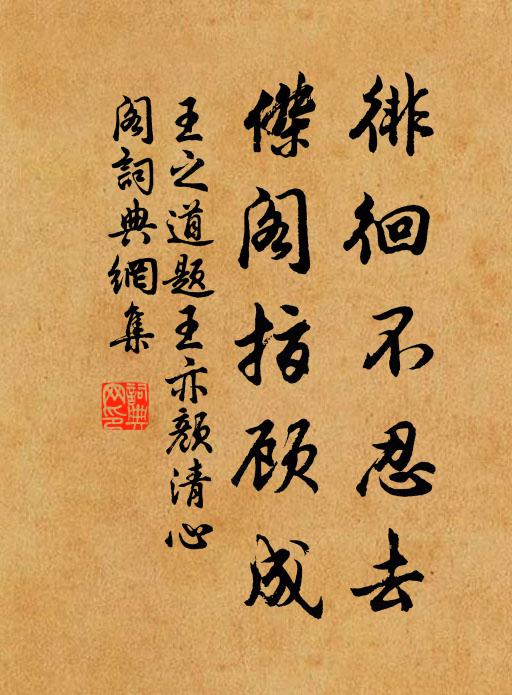 徘徊不忍去
傑阁指顾成
王之道题王亦颜清心
阁詞典網集
詞典网印